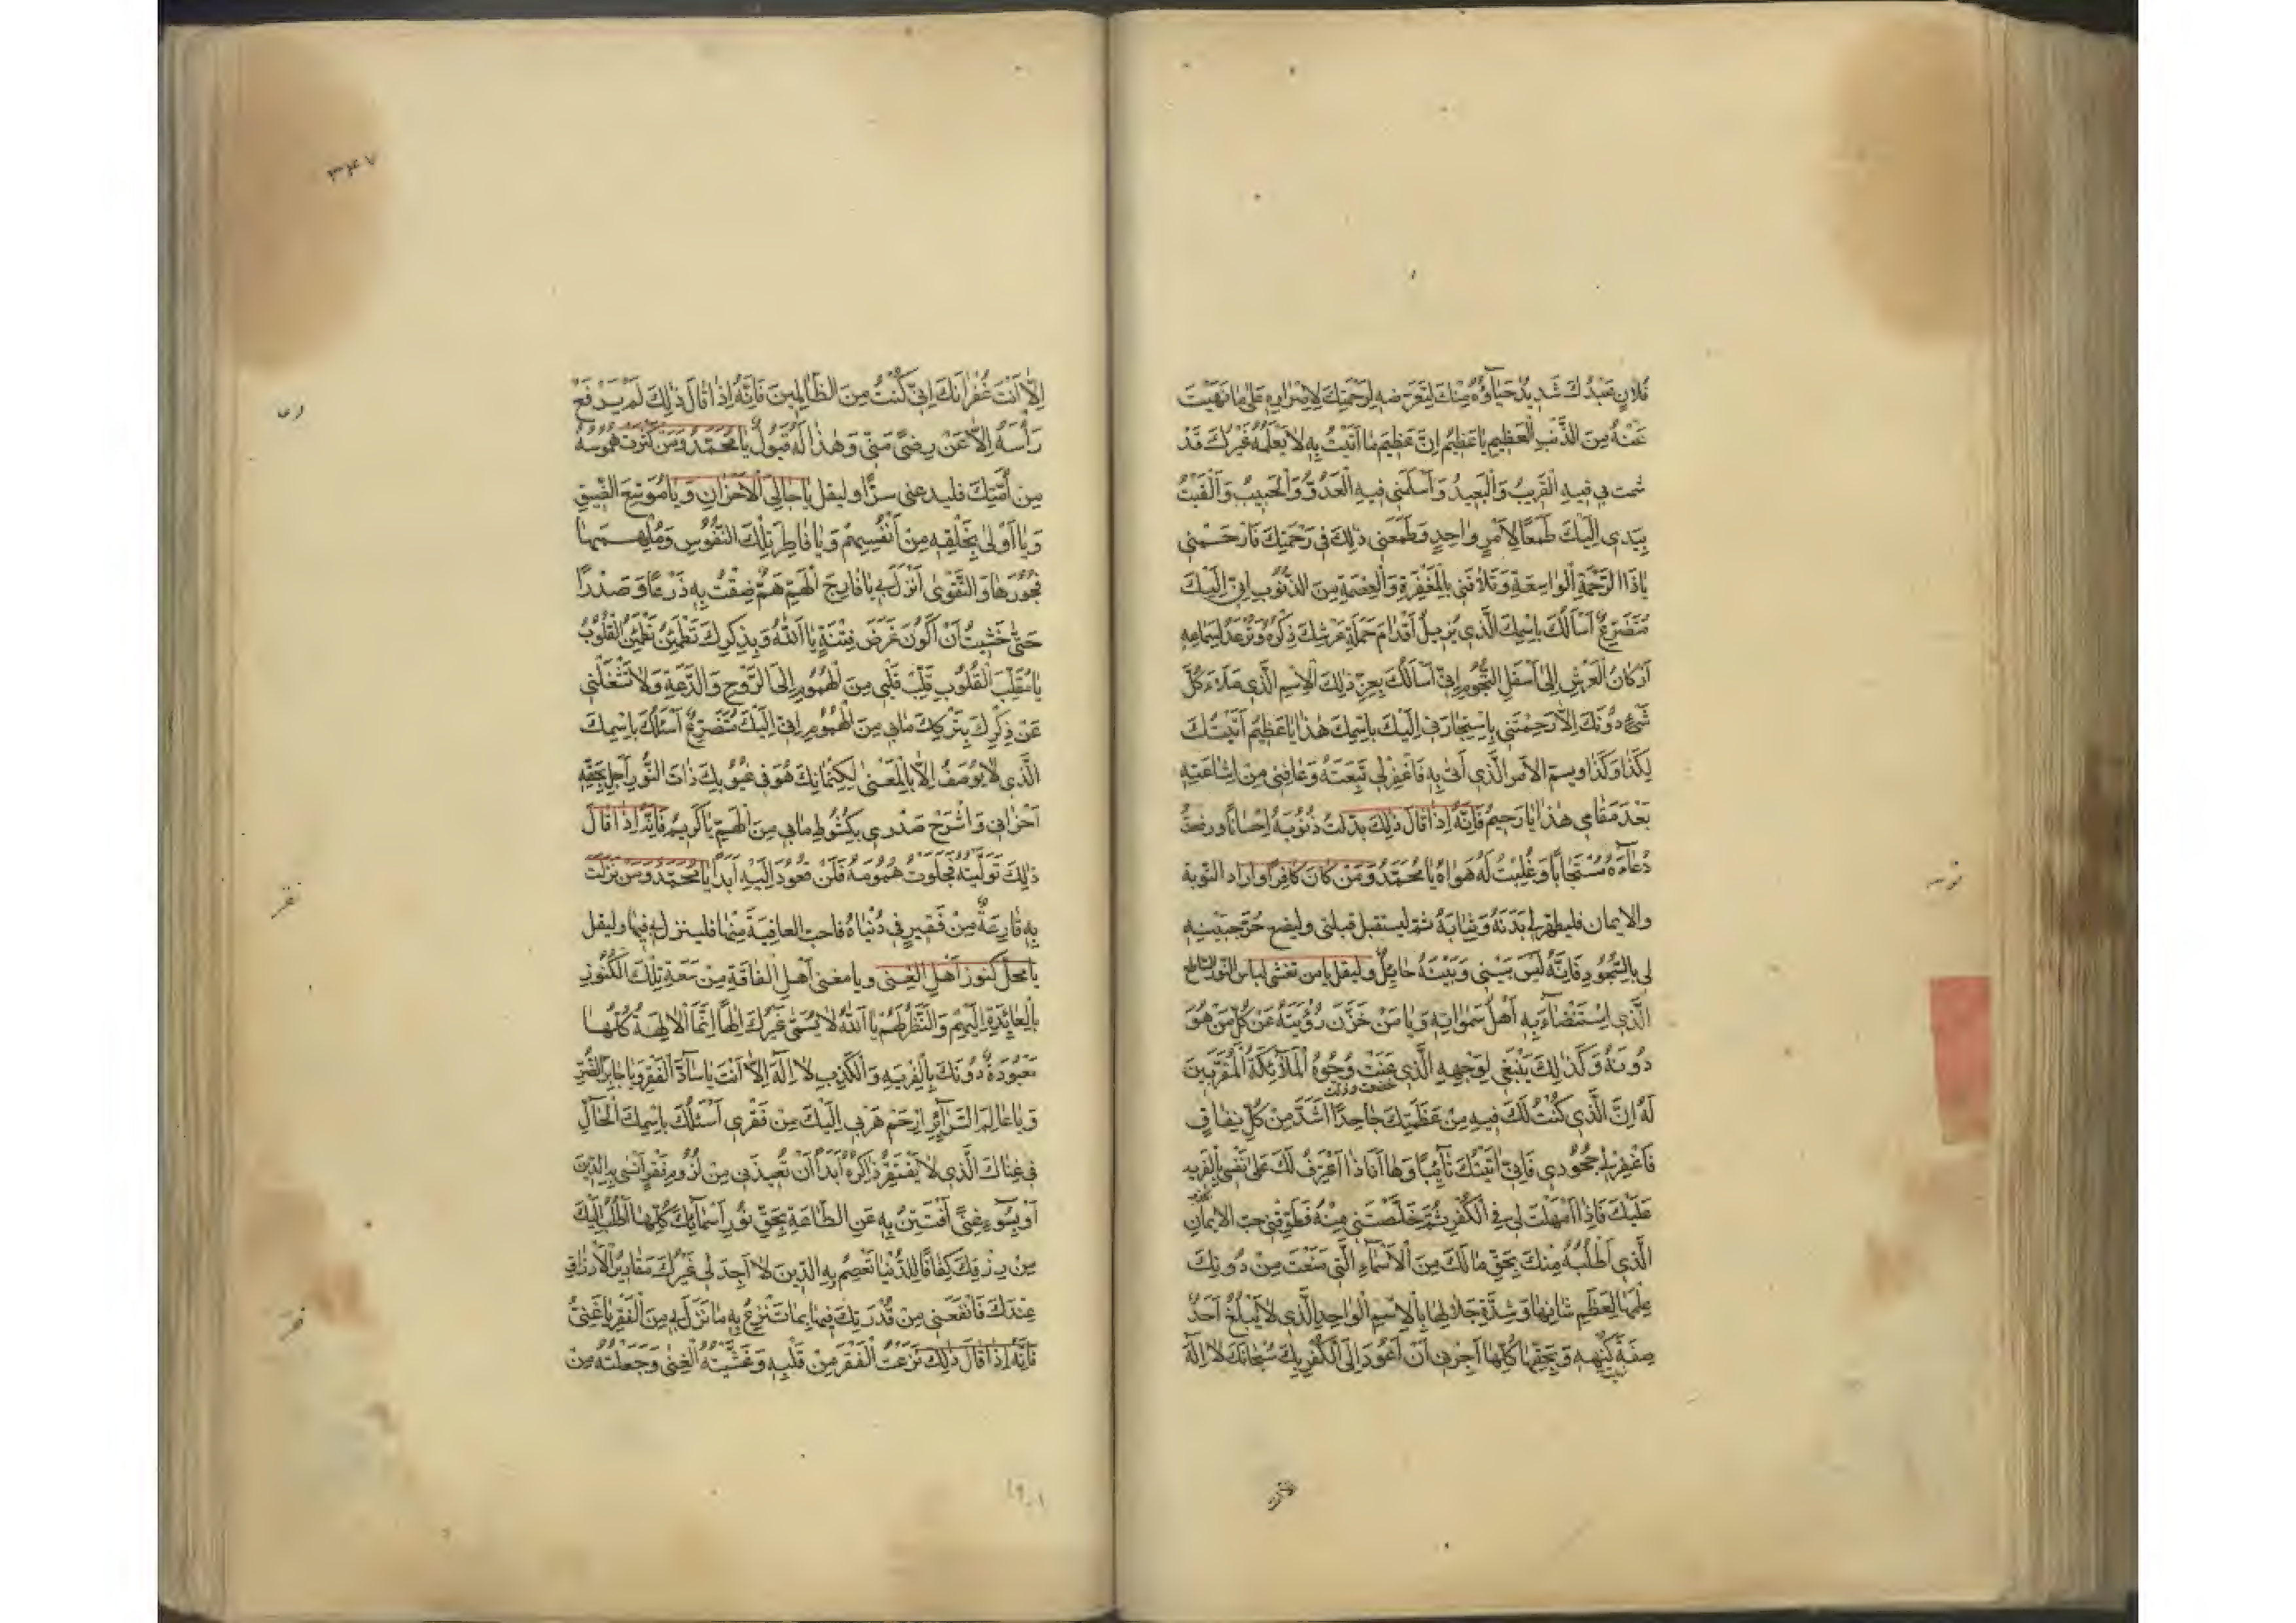 فُلَانٍ عَبْدُكَ شَدِيدٌ حَيَاؤُهُ مِنْكَ لِتَعَرُّضِهِ لِرَحْمَتِكَ لِإِصْرَارِهِ عَلَى مَا نَهَيْتَ
عَنْهُ مِنَ الذَّنْبِ الْعَظِيمِ يَا عَظِيمُ إِنَّ عَظِيمَ مَا أَتَيْتُ بِهِ لَا يَعْلَمُهُ غَيْرُكَ قَدْ
شمت بِي فِيهِ الْقَرِيبُ وَالْبَعِيدُ وَأَسْلَمَنِي فِيهِ الْعَدُوُّ وَالْحَبِيبُ وَأَلْقَيْتُ
بِيَدِي إِلَيْكَ طَمَعًا لِأَمْرٍ وَاحِدٍ وَطَمَعِي ذَلِكَ فِي رَحْمَتِكَ فَارْحَمْنِي
يَا ذَا الرَّحْمَةِ الْوَاسِعَةِ وَتَلَافَنِي بِالْمَغْفِرَةِ وَالْعِصْمَةِ مِنَ الذُّنُوبِ إِنِّي إِلَيْكَ
مُتَضَرِّعٌ أَسْأَلُكَ بِاسْمِكَ الَّذِي يُزِيلُ أَقْدَامَ حَمَلَةِ عَرْشِكَ ذِكْرُهُ وَتُرْعَدُ لِسَمَاعِهِ
أَرْكَانُ الْعَرْشِ إِلَى أَسْفَلِ التُّخُومِ إِنِّي أَسْأَلُكَ بِعِزِّ ذَلِكَ الْاِسْمِ الَّذِي مَلَأَ كُلَّ
شَيْءٍ دُونَكَ إِلَّا رَحِمْتَنِي بِاسْتِجَارَتِي إِلَيْكَ بِاسْمِكَ هَذَا يَا عَظِيمُ أَتَيْتُكَ
بِكَذَا وَكَذَا ويسمّ الأمر الَّذِي أَتَى بِهِ فَاغْفِرْ لِي تَبِعَتَهُ وَعَافِنِي مِنْ إِشَاعَتِهِ
بَعْدَ مَقَامِي هَذَا يَا رَحِيمُ فَإِنَّهُ إِذَا قَالَ ذَلِكَ بَدَّلْتُ ذُنُوبَهُ إِحْسَانًا ورفعتُ
دُعَاءَهُ مُسْتَجَابًا وَغَلَبْتُ لَهُ هَوَاهُ يَا مُحَمَّدُ وَمَنْ كَانَ كَافِرًا واراد التوبة
والايمان فليطهر لي بَدَنَهُ وَثِيَابَهُ ثم ليستقبل قبلتي وليضع حُرَّ جَبِينِهِ
لِي بِالسُّجُودِ فَإِنَّهُ لَيْسَ بَيْنِي وَبَيْنَهُ حَائِلٌ وليقل يا من تغشى لباس النور الساطع
الَّذِي اسْتَضَاءَ بِهِ أَهْلُ سَمَوَاتِهِ وَيَا مَنْ خَزَنَ رُؤْيَتَهُ عَنْ كُلِّ مَنْ هُوَ
دُونَهُ وَكَذَلِكَ يَنْبَغِي لِوَجْهِهِ الَّذِي عَنَتْ وُجُوهُ الْمَلَائِكَةِ الْمُقَرَّبِينَ
لَهُ إِنَّ الَّذِي كُنْتُ لَكَ فِيهِ مِنْ عَظَمَتِكَ جَاحِدًا أَشَدُّ مِنْ كُلِّ نِفَاقٍ
فَاغْفِرْ لِي جُحُودِي فَإِنِّي أَتَيْتُكَ تَائِبًا وَهَا أَنَا ذَا أَعْتَرِفُ لَكَ عَلَى نَفْسِي بِالْفِرْيَةِ
عَلَيْكَ فَإِذَا أَمْهَلْتَ لِي فِي الْكُفْرِ ثُمَّ خَلَّصْتَنِي مِنْهُ فَطَوِّقْنِي حب الايمان
الَّذِي أَطْلُبُهُ مِنْكَ بِحَقِّ مَا لَكَ مِنَ الْأَسْمَاءِ الَّتِي مَنَعْتَ مِنْ دُونِكَ
عِلْمَهَا لِعَظِيمِ شَأْنِهَا وَشِدَّةِ جَلَالِهَا بِالْاِسْمِ الْوَاحِدِ الَّذِي لَا يَبْلُغُ أَحَدٌ
صِفَةَ كُنْهِهِ وَبِحَقِّهَا كُلِّهَا أَجِرْنِي أَنْ أَعُودَ إِلَى الْكُفْرِ بِكَ سُبْحَانَكَ لَا إِلَهَ
توبه
الا انت
۳۴۷
إِلَّا أَنْتَ غُفْرَانَكَ إِنِّي كُنْتُ مِنَ الظَّالِمِينَ فَإِنَّهُ إِذَا قَالَ ذَلِكَ لَمْ يَرْفَعْ
رَأْسَهُ إِلَّا عَنْ رِضًى مِنِّي وَهَذَا لَهُ قَبُولٌ يَا مُحَمَّدُ وَمَنْ كَثُرَتْ هُمُومُهُ
مِنْ أُمَّتِكَ فليدعني سرًّا وليقل يَا جَالِيَ الْأَحْزَانِ وَيَا مُوَسِّعَ الضِّيقِ
وَيَا أَوْلَى بِخَلْقِهِ مِنْ أَنْفُسِهِمْ وَيَا فَاطِرَ تِلْكَ النُّفُوسِ وَمُلْهِمَهَا
فُجُورَهَا وَالتَّقْوَى أَنْزَلَ بِي يَا فَارِجَ الْهَمِّ هَمٌّ ضِقْتُ بِهِ ذَرْعًا وَصَدْرًا
حَتَّى خَشِيتُ أَنْ أَكُونَ غَرَضَ فِتْنَةٍ يَا اللَّهُ وَبِذِكْرِكَ تَطْمَئِنُّ تَطْمَئِنُّ الْقُلُوبُ
يَا مُقَلِّبَ الْقُلُوبِ قَلِّبْ قَلْبِي مِنَ الْهُمُومِ إِلَى الرَّوْحِ وَالدَّعَةِ وَلَا تَشْغَلْنِي
عَنْ ذِكْرِكَ بِتَرْكِكَ مَا بِي مِنَ الْهُمُومِ إِنِّي إِلَيْكَ مُتَضَرِّعٌ أَسْئَلُكَ بِاسْمِكَ
الَّذِي لَا يُوصَفُ إِلَّا بِالْمَعْنَى لِكِتْمَانِكَ هُوَ فِي غُيُوبِكَ ذَاتِ النُّورِ أَجْلِ بِحَقِّهِ
أَحْزَانِي وَاشْرَحْ صَدْرِي بِكُشُوطِ مَا بِي مِنَ الْهَمِّ يَا كَرِيمُ فَإِنَّهُ إِذَا قَالَ
ذَلِكَ تَوَلَّيْتُهُ فَجَلَوْتُ هُمُومَهُ فَلَنْ تَعُودَ إِلَيْهِ أَبَدًا يَا مُحَمَّدُ وَمَنْ نَزَلَتْ
بِهِ قَارِعَةٌ مِنْ فَقْرٍ فِي دُنْيَاهُ فاحب العافِيَةَ مِنْهَا فلينزل بي فيها وليقل
يَا مَحَلَّ كُنُوزِ أَهْلِ الْغِنَى ويا مغني أَهْلِ الْفَاقَةِ مِنْ سَعَةِ تِلْكَ الْكُنُوزِ
بِالْعَائِدَةِ إِلَيْهِمْ وَالنَّظَرِ لَهُمْ يَا اللَّهُ لَا يُسَمَّى غَيْرُكَ إِلَهًا إِنَّمَا الْآلِهَةُ كُلُّهَا
مَعْبُودَةٌ دُونَكَ بِالْفِرْيَةِ وَالْكَذِبِ لَا إِلَهَ إِلَّا أَنْتَ يَا سَادَّ الْفَقْرِ وَيَا جَابِرَ الضُّرِّ
وَيَا عَالِمَ السَّرَائِرِ ارْحَمْ هَرَبِي إِلَيْكَ مِنْ فَقْرِي أَسْئَلُكَ بِاسْمِكَ الْحَالِّ
فِي غِنَاكَ الَّذِي لَا يَفْتَقِرُ ذَاكِرُهُ أَبَدًا أَنْ تُعِيذَنِي مِنْ لُزُومِ فَقْرٍ أَنْسَى بِهِ الدِّينَ
أَوْ بِسُوءِ غِنًى أَفْتَتِنُ بِهِ عَنِ الطَّاعَةِ بِحَقِّ نُورِ أَسْمَائِكَ كُلِّهَا أَطْلُبُ إِلَيْكَ
مِنْ رِزْقِكَ كَفَافًا لِلدُّنْيَا تَعْصِمُ بِهِ الدِّينَ لَا أَجِدُ لِي غَيْرَكَ مَقَادِيرُ الْأَرْزَاقِ
عِنْدَكَ فَانْفَعْنِي مِنْ قُدْرَتِكَ فِيهَا بِمَا تَنْزِعُ بِهِ مَا نَزَلَ بِي مِنَ الْفَقْرِ يَا غَنِيُّ
فَإِنَّهُ إِذَا قَالَ ذَلِكَ نَزَعْتُ الْفَقْرَ مِنْ قَلْبِهِ وَغَشَّيْتُهُ الْغِنَى وَجَعَلْتُهُ مِنْ